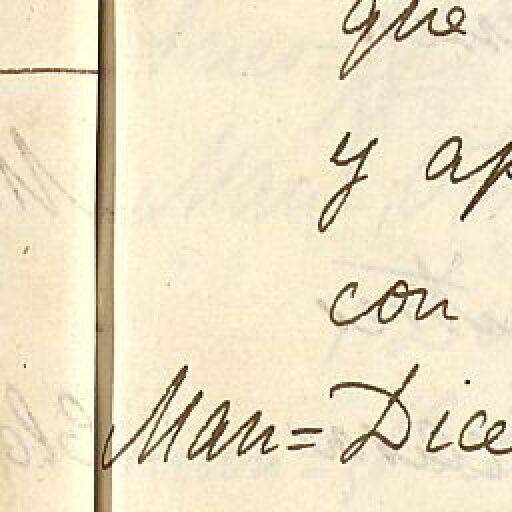 que
y ap
con
Man= Dice